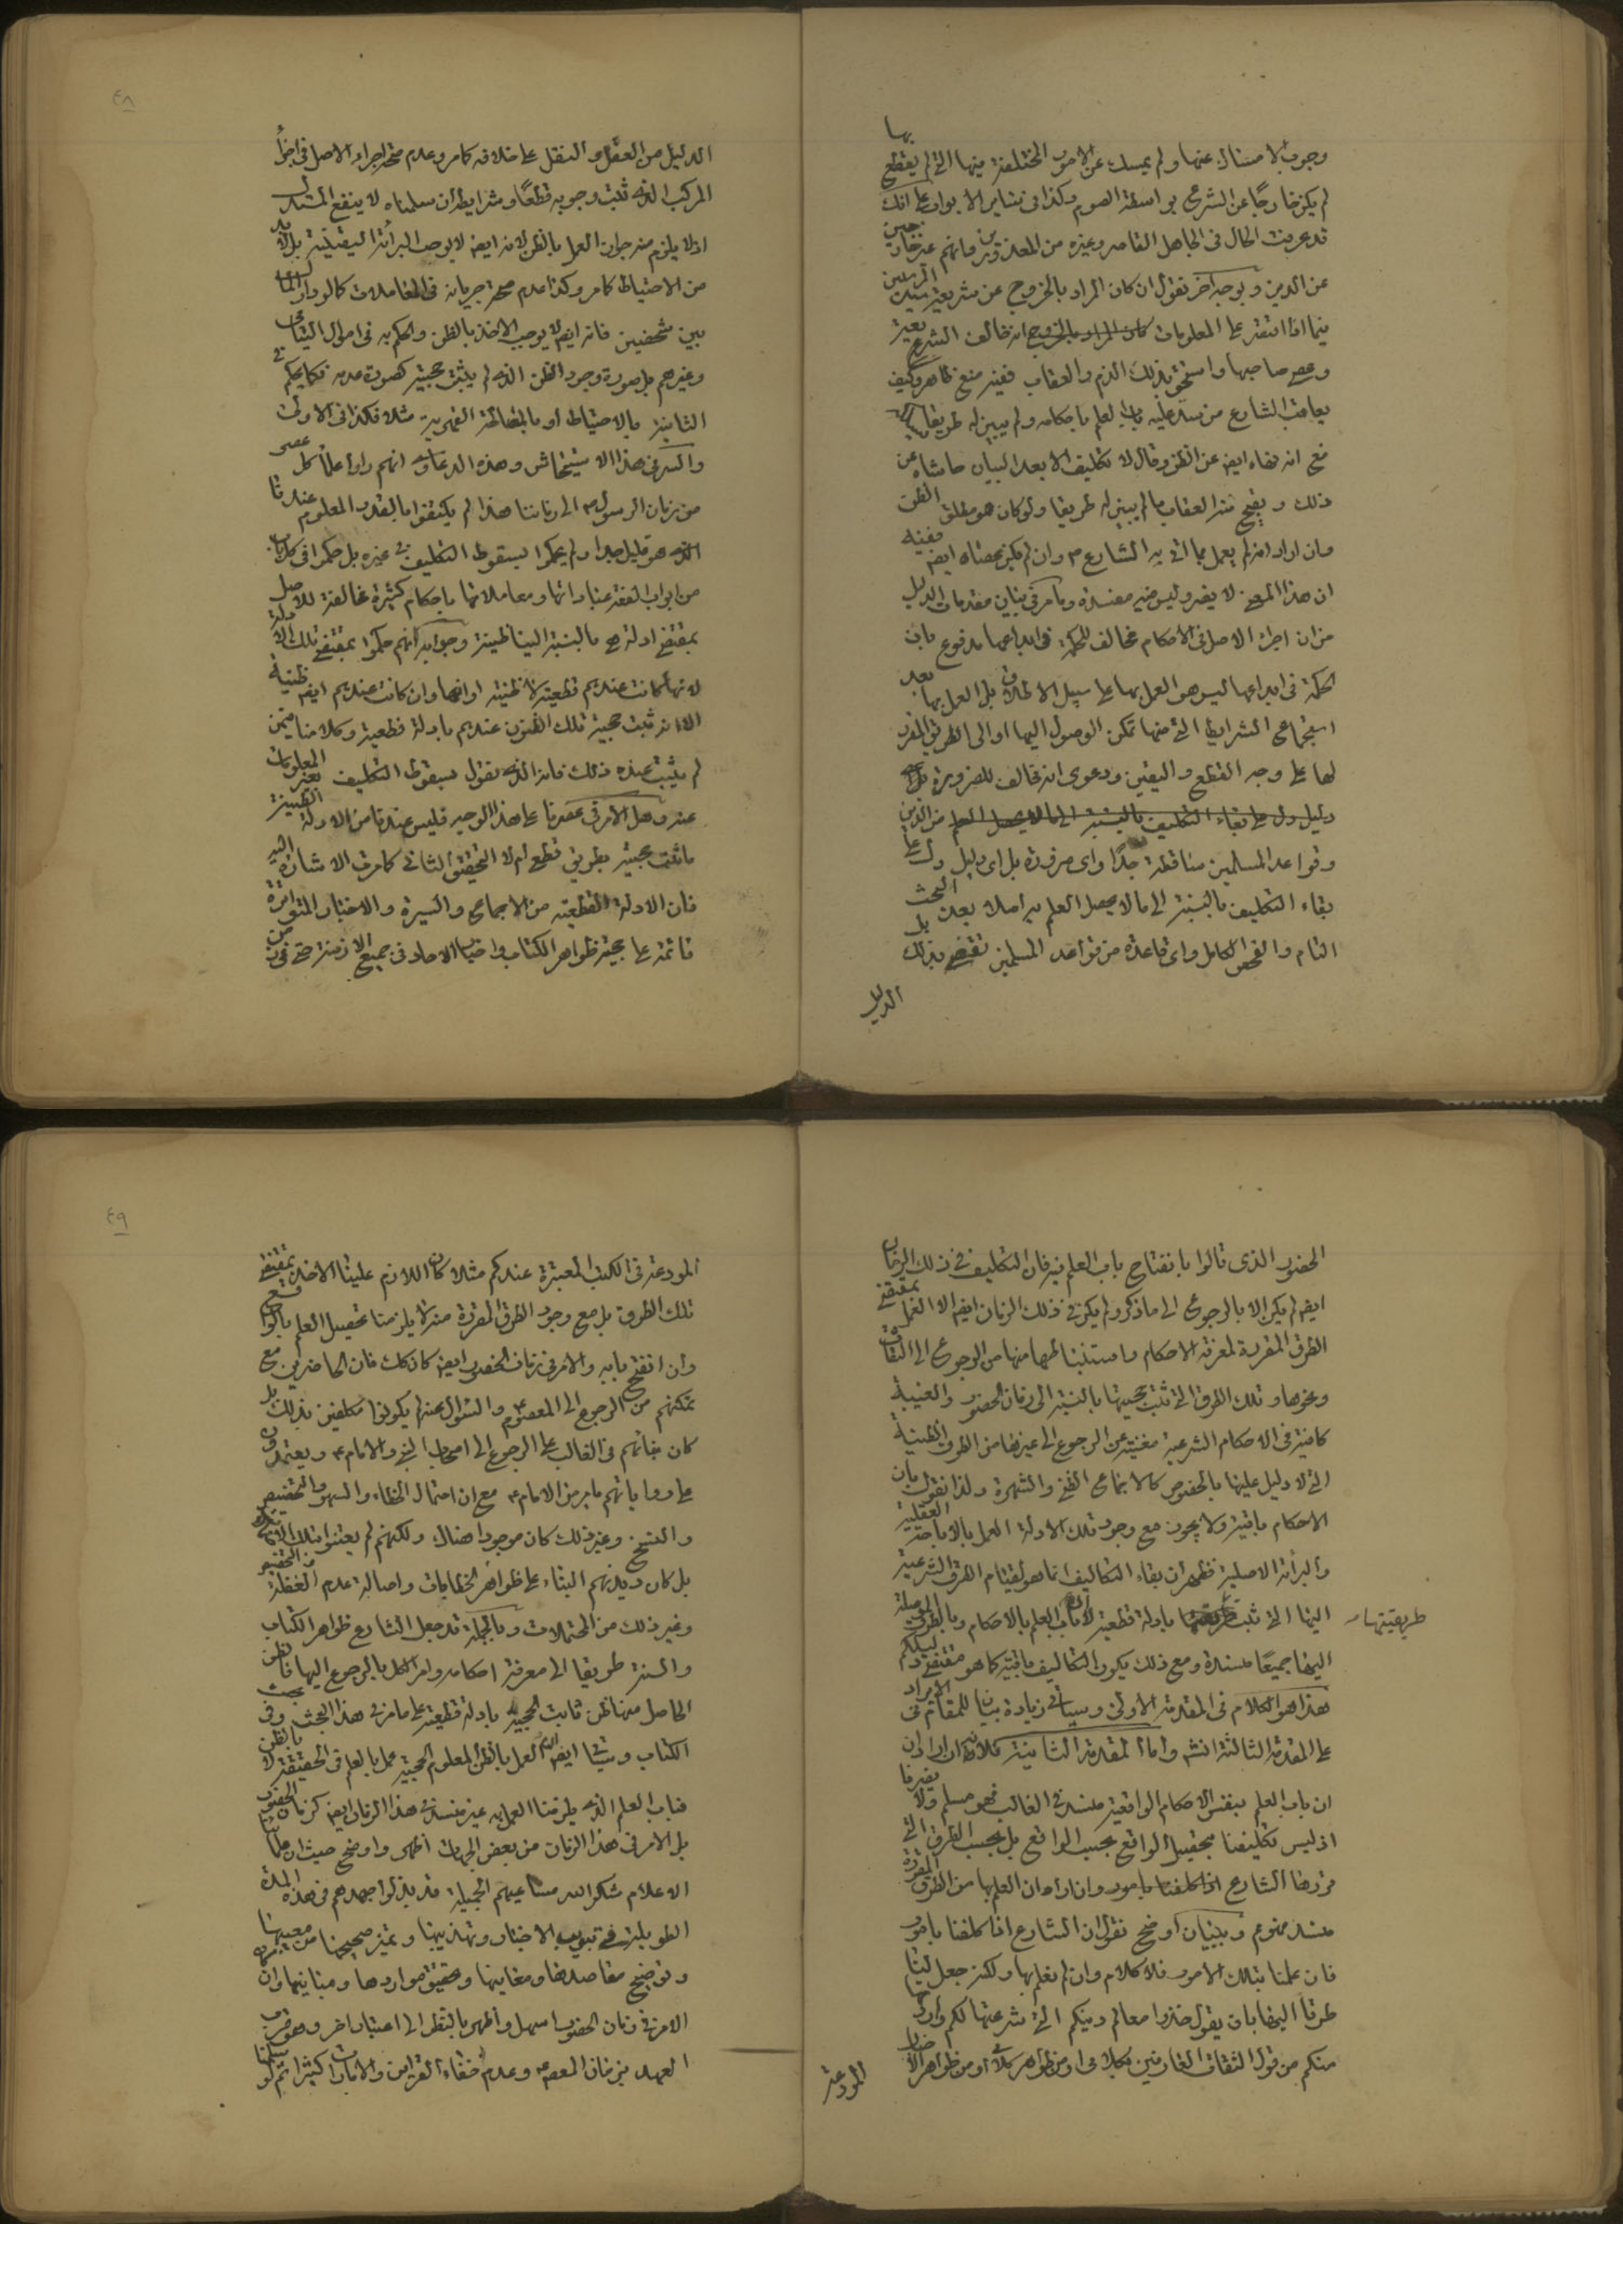 وجوب الامساك عنها ولم يمسك عن الامور المختلفة فيها التي لم يقطع بها
لم يكن خارجًا عن الشرع بواسطة الصوم وكذا في سائر الابواب على انك
قد عرفت الحال في الجاهل القاصر وغيره من المعذورين فانهم غير خارجين
عن الدين وبوجه آخر نقول ان كان المراد بالخروج عن شريعة سيد المرسلين
فيما اذا اقتصر على المعلومات انه خالف الشرع
وعصى صاحبها واستحق بذلك الذم والعقاب ففيه منع ظاهر وكيف
يعاقب الشارع من سد عليه باب العلم باحكامه ولم يبين له طريقا
مع انه نهاه ايضا عن الظن وقال لا تكليف الا بعد البيان حاشاه عن
ذلك ويقبح منه العقاب ما لم يبين له طريقا ولو كان هو مطلق الظن
وان اراد انه لم يعمل بما اتى به الشارع ص وان لم يكن عصاه ايضا ففيه
ان هذا المعنى لا يضر وليس فيه مفسدة وما مر في بيان مقدمات الدليل
من ان اجراء الاصل في الاحكام مخالف للحكمة في ابداعها مدفوع بان
الحكمة في ابداعها ليس هو العمل بها على سبيل الاطلاق بل العمل بها بعد
استجماع الشرايط التي منها تمكن الوصول اليها او الى الطريق المقرر
لها على وجه القطع واليقين ودعوى انه مخالف للضرورة
دليل دل على بقاء التكليف بالنسبة الى ما لا يحصل العلم من الدين
وقواعد المسلمين ساقطة جدًا واى ضرورة بل اى دليل دل على
بقاء التكليف بالنسبة الى ما لا يحصل العلم به اصلا بعد البحث
التام والفحص الكامل واى قاعدة من قواعد المسلمين تقضى بذلك بل
الدليل
٤٨
الدليل من العقل والنقل على خلافه كما مر وعدم صحة اجراء الاصل في اجزاء
المركب الذي ثبت وجوبه قطعًا وشرايطه ان سلمناه لا ينفع المستدل
اذ لا يلزم منه جواز العمل بالظن لانه ايضا لا يوجب البرائة اليقينية بل لا بد
من الاحتياط كما مر وكذا عدم صحة جريانه في المعاملات كما لو دار المال
بين شخصين فانه ايضا لا يوجب الاخذ بالظن والحكم به في اموال اليتامى
وغيرهم بل صورة وجود الظن الذي لم يثبت حجيته كصورة عدمه فكما يحكم في
الثانية بالاحتياط او بالمصالحة القهرية مثلا فكذا في الاولى
والسر في هذا الاستيحاش وهذه الدعاوى انهم راوا علماء كل عصر
من زمان الرسول ص الى زماننا هذا لم يكتفوا بالقدر المعلوم عندنا
الذي هو قليل جدا ولم يحكموا بسقوط التكليف في غيره بل حكموا في كل باب
من ابواب الفقه عباداتها ومعاملاتها باحكام كثيرة مخالفة للاصل
بمقتضى ادلة هي بالنسبة الينا ظنية وجوابه انهم حكموا بمقتضى تلك الادلة
لانها كانت عندهم قطعية لا ظنية او انها وان كانت عندهم ايضا ظنية
الا انه ثبت حجية تلك الظنون عندهم بادلة قطعية وكلامنا فيمن
لم يثبت عنده ذلك فانه الذي نقول بسقوط التكليف بغير المعلومات
عنه وهل الامر في عصرنا على هذا الوجه فليس عندنا من الادلة الظنية
ما ثبت حجيته بطريق قطعي ام لا التحقيق الثاني كما مرت الاشارة اليه
فان الادلة القطعية من الاجماع والسيرة والاخبار المتواترة
قائمة على حجية ظواهر الكتاب واخبار الاحاد في جميع الازمنة حتى في زمن
الحضور الذي قالوا بانفتاح باب العلم فيه فان التكليف في ذلك الزمان
ايضا لم يكن الا بالرجوع الى ما ذكر ولم يكن في ذلك الزمان ايضا الا العمل بمقتضى
الطرق المقررة لمعرفة الاحكام واستنباطها منها من الرجوع الى الثقات
ونحوها وتلك الطرق التي ثبت حجيتها بالنسبة الى زمان الحضور والغيبة
كافية في الاحكام الشرعية مغنية عن الرجوع الى غيرها من الطرق الظنية
التي لا دليل عليها بالخصوص كالاجماع الظني والشهرة ولذا نقول بان
الاحكام باقية ولا يجوز مع وجود تلك الادلة العمل بالاباحة العقلية
والبرائة الاصلية فظهر ان بقاء التكاليف انما هو لقيام الطرق الشرعية
اليها التي ثبت طريقيتها بادلة قطعية لا ان باب العلم بالاحكام وبالطرق الموصلة
اليها جميعًا مسندة ومع ذلك يكون التكاليف باقية كما هو مقتضى دليلكم
هذا هو الكلام في المقدمة الاولى وسيأتي زيادة بيان للمقام في الايراد
على المقدمة الثالثة انشه واما المقدمة الثانية فلانه ان اراد ان
ان باب العلم بنفس الاحكام الواقعية منسد في الغالب فهو مسلم ولا يضرنا
اذ ليس تكليفنا بتحصيل الواقع بحسب الواقع بل بحسب الطرق التي
قررها الشارع اذا كلفنا بامور وان اراد ان العلم بها من الطرق المقررة
منسد ممنوع وببيان اوضح نقول ان الشارع اذا كلفنا بامور
فان علمنا بتلك الامور فلا كلام وان لم نعلم بها ولكن جعل لنا
طرقا اليها بان يقول خذوا معالم دينكم التي شرعتها لكم
منكم من قول الثقات العارفين بكلامى او من ظواهر كلامى او من ظواهر الاخبار
طريقيتها
المودعة
٤٩
المودعة في الكتب المعتبرة عندكم مثلا كان اللازم علينا الاخذ بمقتضى
تلك الطرق بل مع وجود الطرق المقررة منه لا يلزمنا تحصيل العلم بالواقع
وان انفتح بابه والامر في زمان الحضور ايضا كان كك فان الحاضرين مع
تمكنهم من الرجوع الى المعصوم والسؤال عنه لم يكونوا مكلفين بذلك بل
كان بنائهم في الغالب على الرجوع الى اصحاب النبي والامام ع ويعتمدون
على رواياتهم ما مر من الامام ع مع ان احتمال الخطاء والسهو والتخصيص
والنسخ وغير ذلك كان موجودا هناك ولكنهم لم يعتنوا بتلك
بل كان ديدنهم البناء على ظواهر الخطابات واصالة عدم الغفلة
وغير ذلك من المحتملات وبالجملة قد جعل الشارع ظواهر الكتاب
والسنة طريقا الى معرفة احكامه وامر الكل بالرجوع اليها فالظن
الحاصل منها ظن ثابت الحجية بادلة قطعية على ما مر في هذا البحث وفي بحث
الكتاب وسيأتي ايضا ان العمل بالظن المعلوم الحجية عمل بالعلم في الحقيقة لا بالظن
فباب العلم الذي يلزمنا العمل به غير منسد في هذا الزمان ايضا كزمان الحضور
بل الامر في هذا الزمان من بعض الجهات اظهر واوضح حيث ان علمائنا
الاعلام شكر الله مساعيهم الجميلة قد بذلوا جهدهم في هذه المدة
الطويلة في تبويب الاخبار وتهذيبها وتميز صحيحها من معيبها
وتوضيح مقاصدها ومعانيها وتحقيق مواردها ومبانيها وان كان
الامر في زمان الحضور اسهل واظهر بالنظر الى اعتبار اخر وهو قرب
العهد بزمان المعصوم وعدم خفاء القرائن والامارات كثيرا ثم لو سلمنا